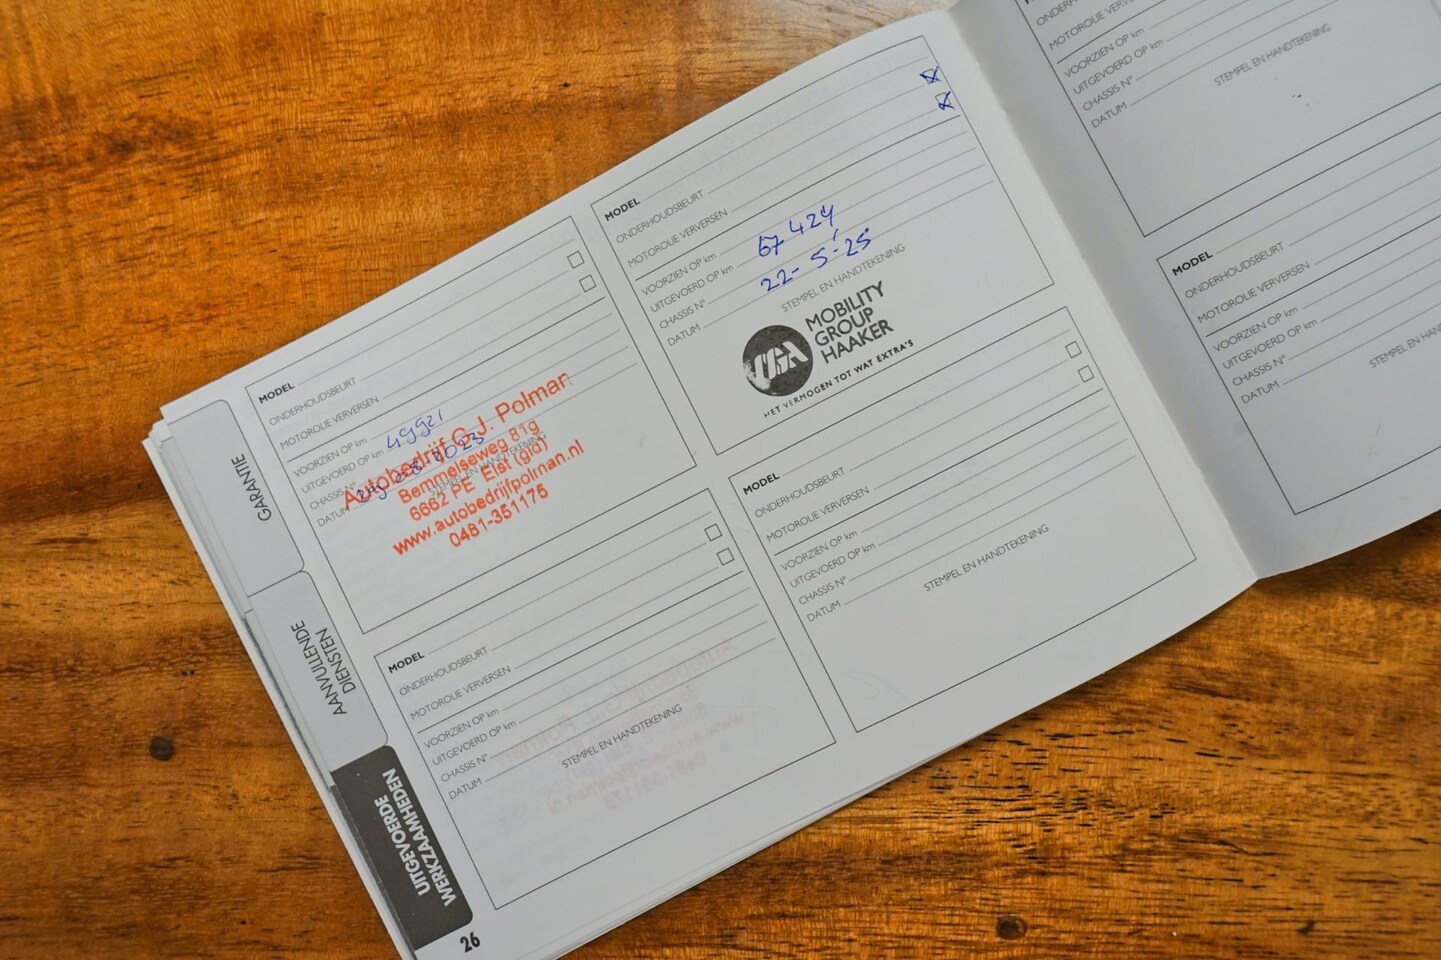 MODEL
ONDERHOUDSBEURT
MOTOROLIE VERVERSEN
VOORZIEN OP km 49921
UITGEVOERD OP km
CHASSIS N°
DATUM 2023
STEMPEL EN HANDTEKENING
Autobedrijf G.J. Polman
Bemmelseweg 81g
6662 PE Elst (gld)
www.autobedrijfpolman.nl
0481-351175
MODEL
ONDERHOUDSBEURT
MOTOROLIE VERVERSEN
VOORZIEN OP km
UITGEVOERD OP km 67 424
CHASSIS N° 22-5-'25
DATUM
STEMPEL EN HANDTEKENING
MGA
MOBILITY
GROUP
HAAKER
HET VERMOGEN TOT WAT EXTRA'S
MODEL
ONDERHOUDSBEURT
MOTOROLIE VERVERSEN
VOORZIEN OP km
UITGEVOERD OP km
CHASSIS N°
DATUM
STEMPEL EN HANDTEKENING
MODEL
ONDERHOUDSBEURT
MOTOROLIE VERVERSEN
VOORZIEN OP km
UITGEVOERD OP km
CHASSIS N°
DATUM
STEMPEL EN HANDTEKENING
GARANTIE
AANVULLENDE
DIENSTEN
UITGEVOERDE
WERKZAAMHEDEN
26
MOTOROLIE
VOORZIEN OP km
UITGEVOERD OP km
CHASSIS N°
DATUM
STEMPEL EN HANDTEKENING
MODEL
ONDERHOUDSBEURT
MOTOROLIE VERVERSEN
VOORZIEN OP km
UITGEVOERD OP km
CHASSIS N°
DATUM
STEMPEL EN